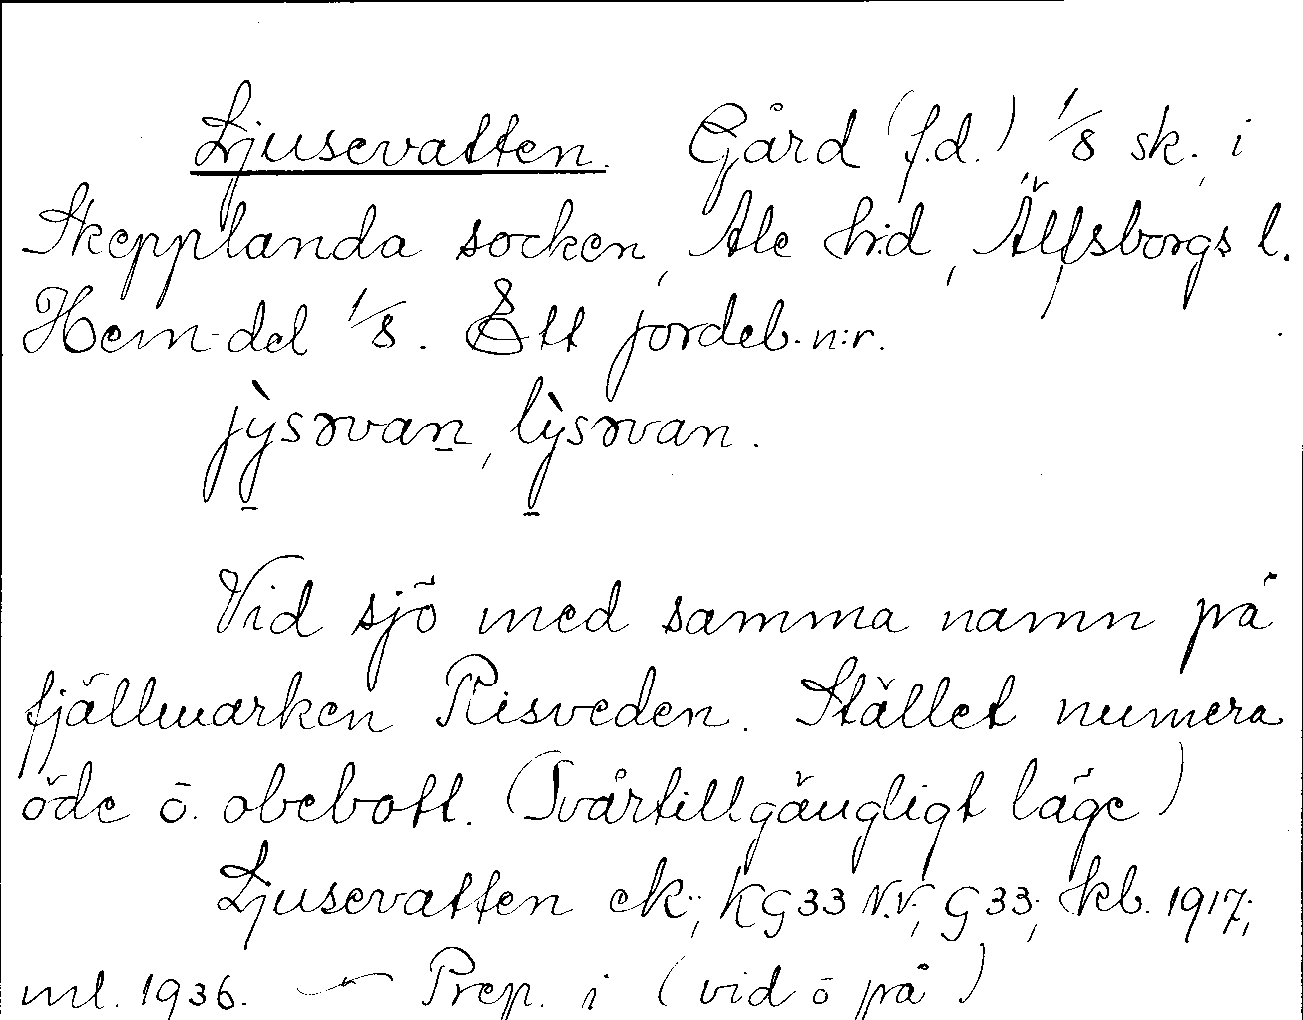 Ljusevatten. Gård (f.d.) 1/8 sk. i
Skepplanda socken, Ale h:d, Älfsborgs l.
Hem-del 1/8. Ett jordeb. n:r.
jỳsəvan, lỳsəvan.
Vid sjö med samma namn på
fjällmarken Risveden. Stället numera
öde o. obebott. (Svårtillgängligt läge)
Ljusevatten ek.; KG 33 N.V.; G 33; kb. 1917;
ml. 1936. — Prep. i (vid o på)